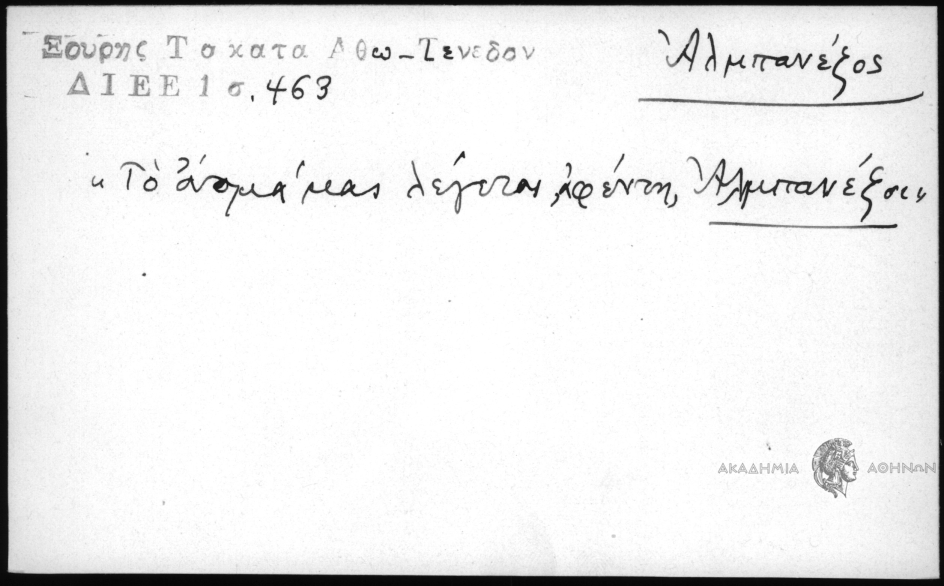 Σουρης Τα κατα Αθω-Τενεδον
ΔΙΕΕ 1 σ. 463
Ἀλμπανέξος
« Τὸ ὄνομά μας λέγεται, ἀφέντη, Ἀλμπανέξοι»
ΑΚΑΔΗΜΙΑ ΑΘΗΝΩΝ